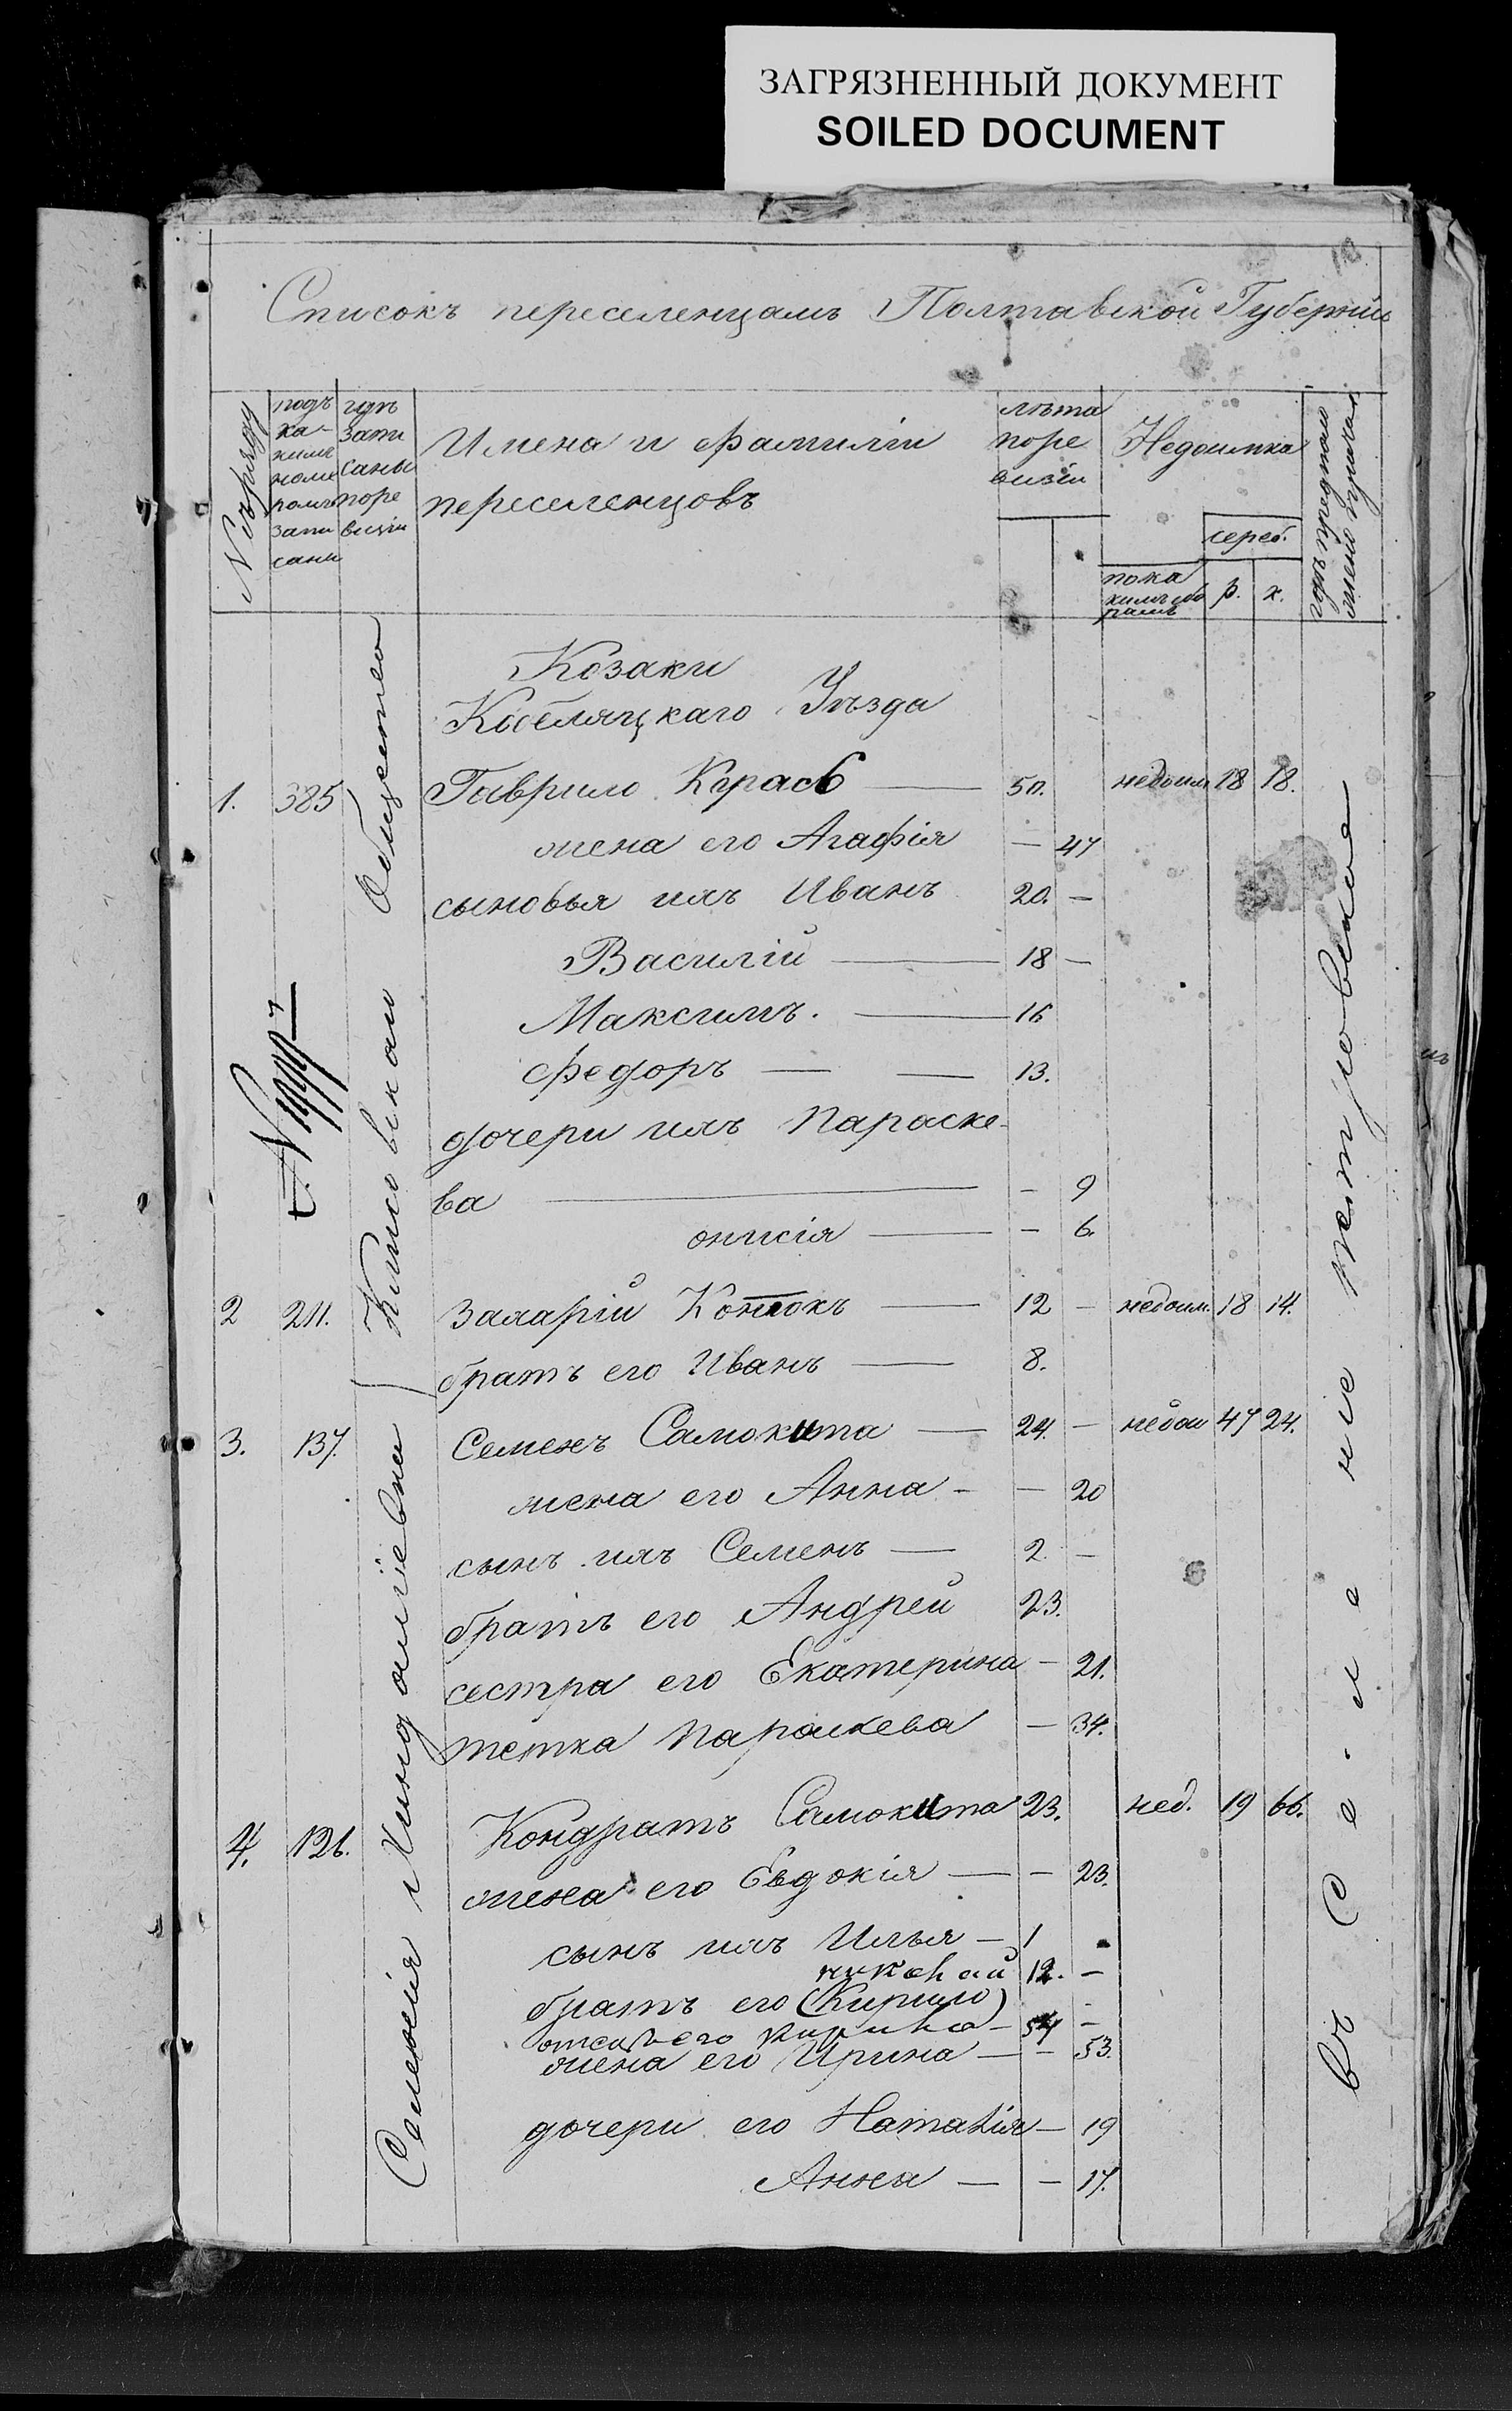 ЗАГРЯЗНЕННЫЙ ДОКУМЕНТ
SOILED DOCUMENT
Списокъ переселенцамъ Полтавской Губерніи
№ поряду
подъ
ка-
кимъ
номе
ромъ
запи
саны
гдѣ
запи
саны
поре
визіи
Имена и фамиліи
переселенцовъ
лѣта
поре
визіи
Недоимка
пока
кимъ сбо
рамъ
сереб.
р.
к.
гдѣ предполо
жено
Козаки
Кобеляцкаго Уѣзда
1. 385 Гаврило Карась — 50. недоим 18 18.
жена его Агафія — 47
сыновья ихъ Иванъ 20. —
Василій — 18 —
Максимъ. — 16
Федоръ — — 13.
дочери ихъ Параске-
ва — — 9
онисія — — 6.
2 211. Захарій — 12 — недоим. 18 14.
братъ его Иванъ — 8.
3. 137. Семенъ Самокита — 24. — недои 47 24.
жена его Анна - — 20
сынъ ихъ Семенъ — 2. —
братъ его Андрей 23.
сестра его Екатерина — 21.
тетка Параскева — 34.
4. 126. Кондратъ Самокита 23. нед. 19 66.
жена его Евдокія — — 23.
сынъ ихъ Илья — 1
николай 12. —
братъ его (Кирило)
отецъ его кирило — 54 —
жена его Ирина — — 53.
дочери его Наталія — 19
Анна — — 17.
Общество
Селенія
въ Селеніе